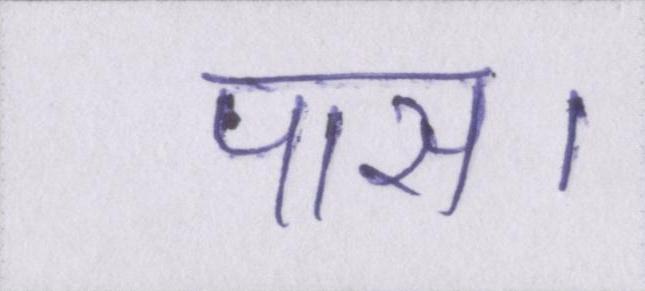 पास।